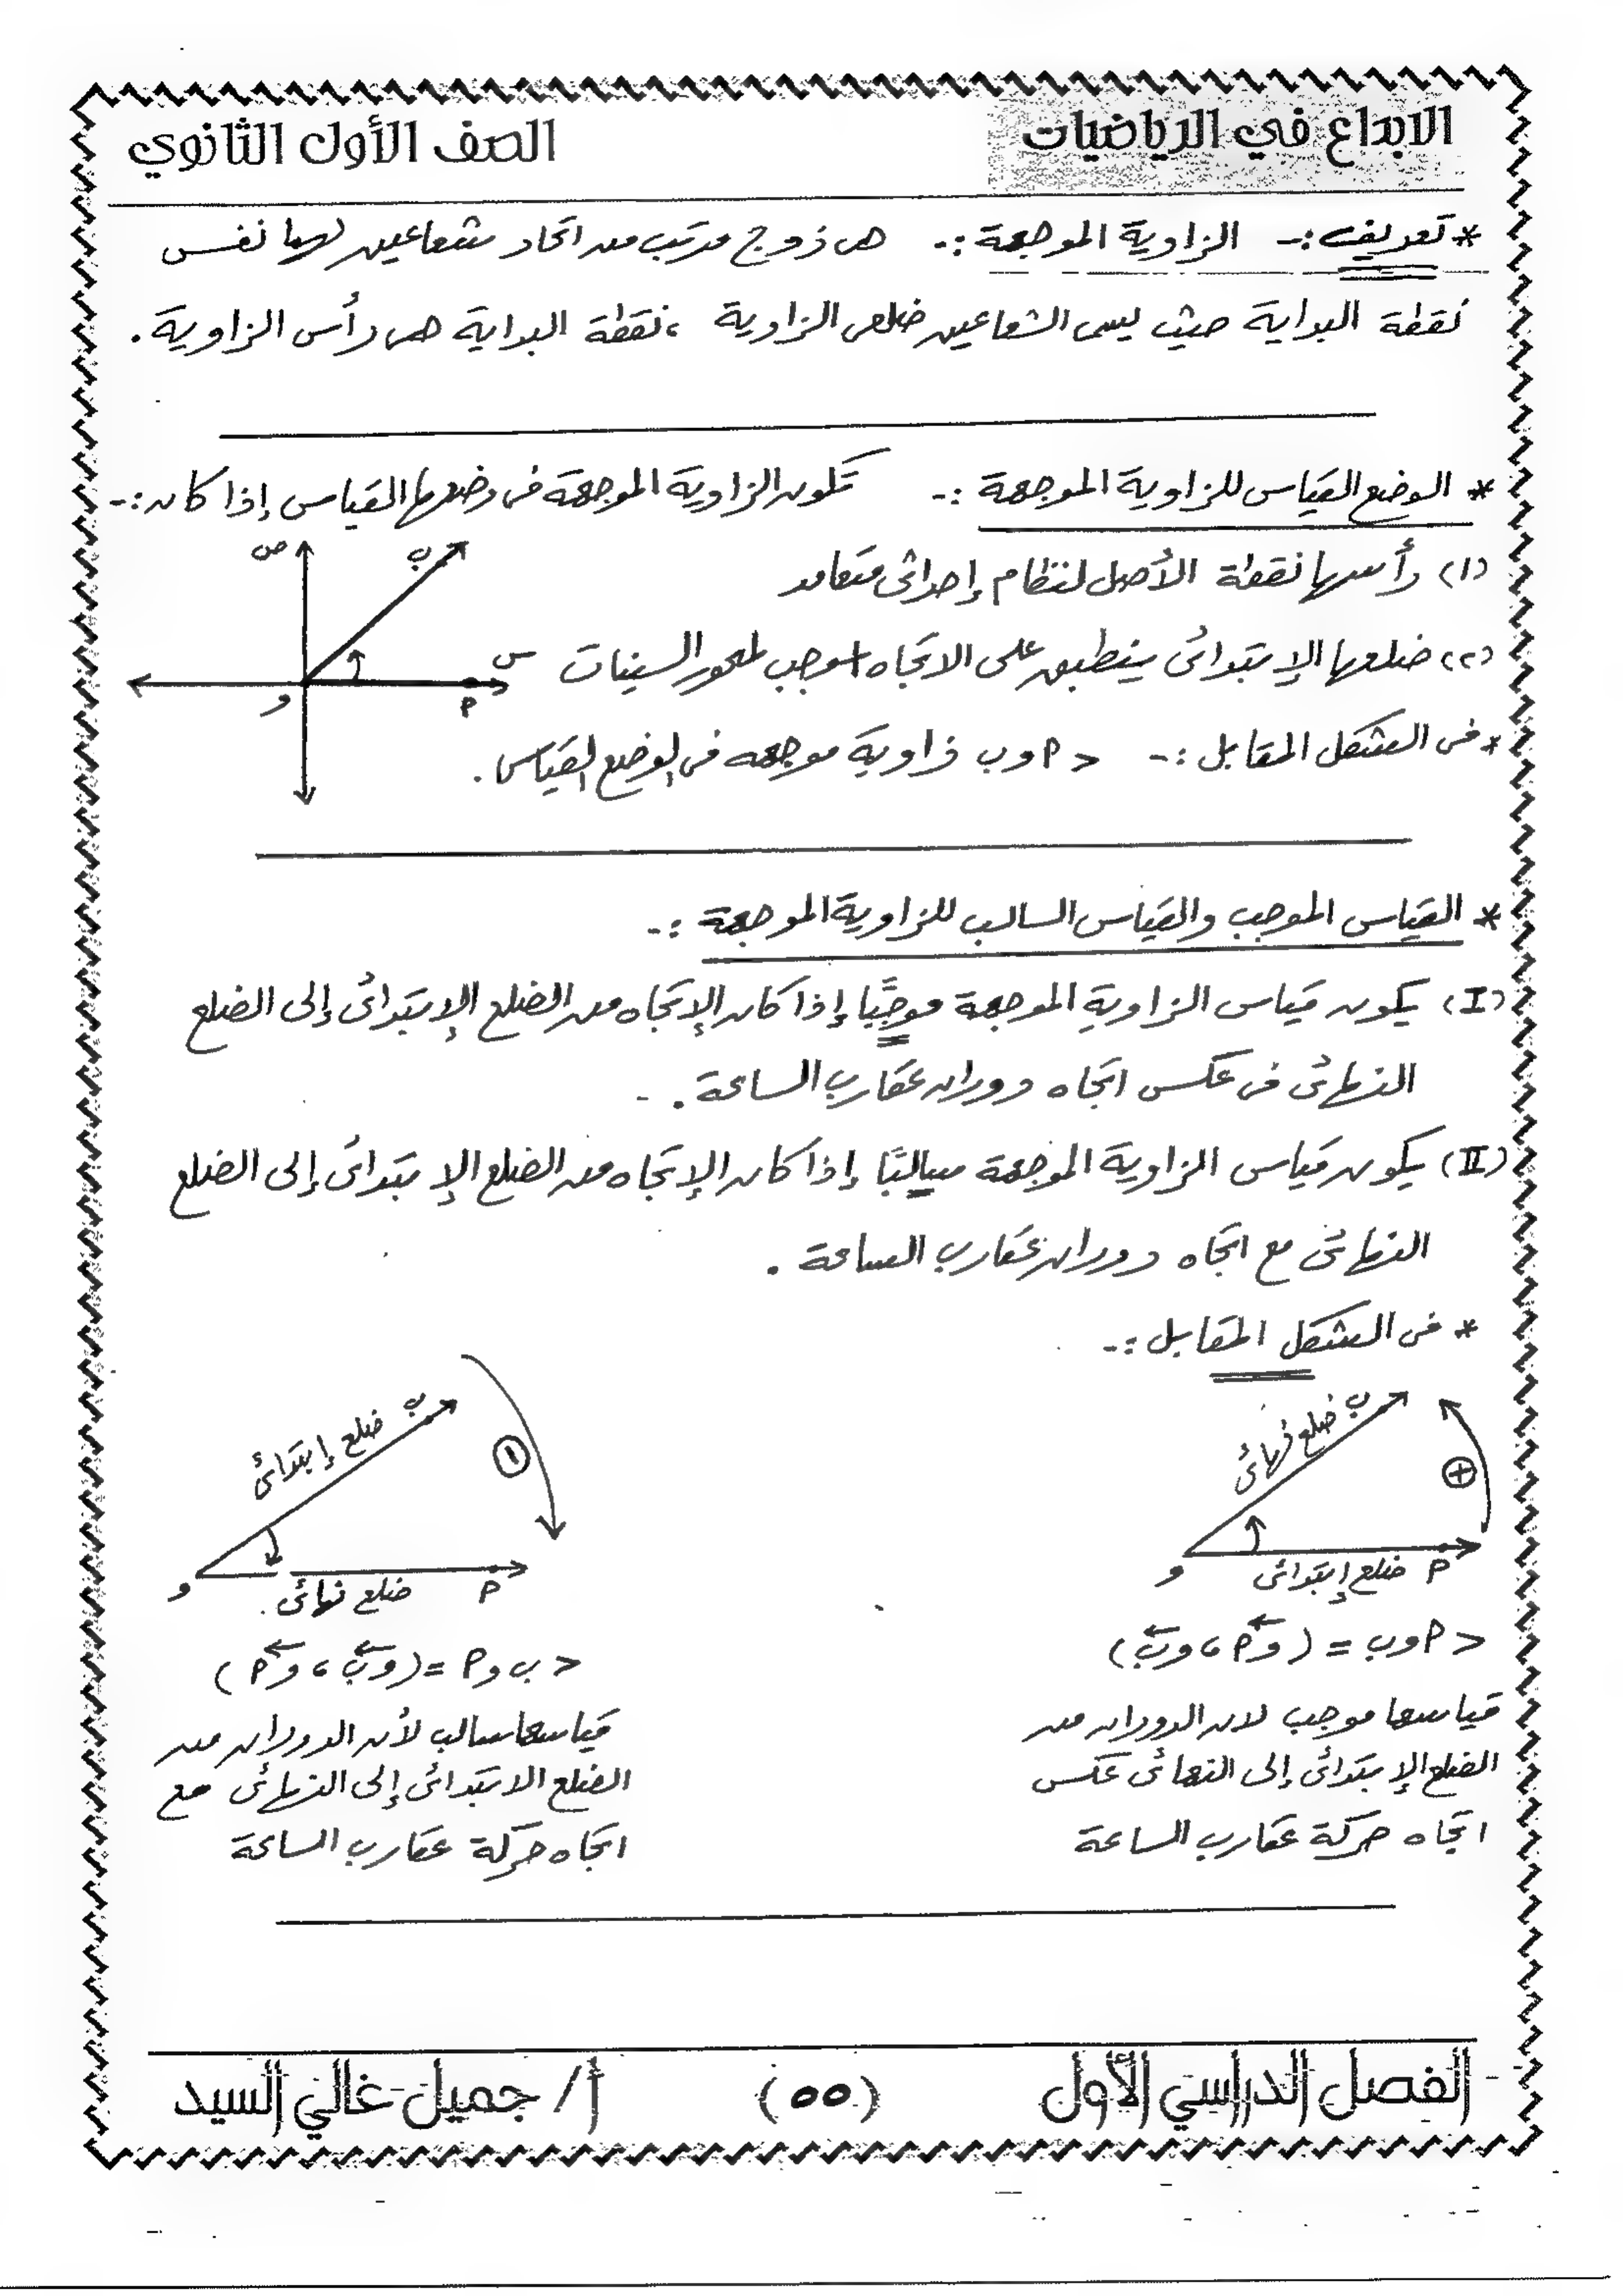 الابداع في الرياضيات
الصف الأول الثانوي
* تعريف :- الزاوية الموجهة :- هى زوج مرتب من اتحاد شعاعين لهما نفس
نقطة البداية حيث يسمى الشعاعين ضلعى الزاوية ، نقطة البداية هى رأس الزاوية .
* الوضع القياسى للزاوية الموجهة :- تكون الزاوية الموجهة فى وضعها القياسى إذا كان :-
(١) رأسها نقطة الأصل لنظام إحداثى متعامد
(٢) ضلعها الإبتدائى ينطبق على الاتجاه الموجب لمحور السينات
* فى الشكل المقابل :- > أوب زاوية موجهه فى الوضع القياسى .
ص
ب
س
و
أ
* القياس الموجب والقياس السالب للزاوية الموجهة :-
(I) يكون قياس الزاوية الموجهة موجبًا إذا كان الإتجاه من الضلع الإبتدائى إلى الضلع
النهائى فى عكس اتجاه دوران عقارب الساعة .
(II) يكون قياس الزاوية الموجهة سالبًا إذا كان الإتجاه من الضلع الإبتدائى إلى الضلع
النهائى مع اتجاه دوران عقارب الساعة .
* فى الشكل المقابل :-
ب ضلع نهائى
+
أ ضلع إبتدائى
و
> أوب = (وأ ، وب)
قياسها موجب لان الدوران من
الضلع الإبتدائى إلى النهائى عكس
اتجاه حركة عقارب الساعة
ب ضلع إبتدائى
-
أ ضلع نهائى
و
> ب وأ = (وب ، وأ)
قياسها سالب لأن الدوران من
الضلع الابتدائى إلى النهائى مع
اتجاه حركة عقارب الساعة
الفصل الدراسي الأول
(٥٥)
أ/ جميل غالي السيد